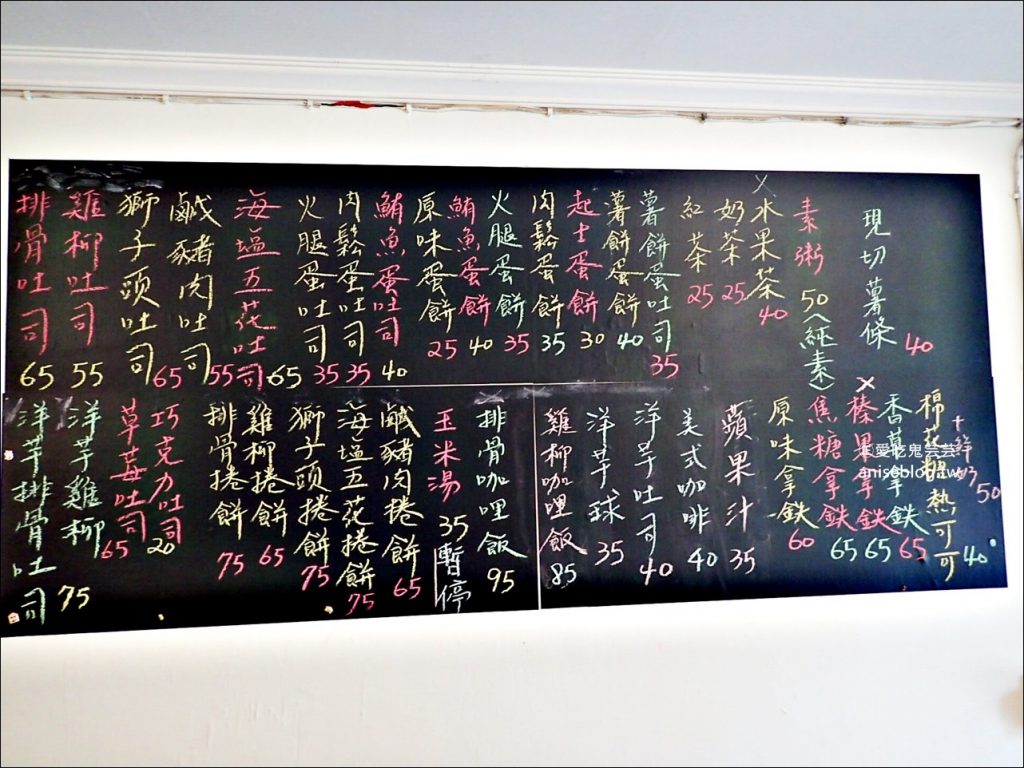 排骨吐司 65
雞柳吐司 55
獅子頭吐司 65
鹹豬肉吐司 55
海塩五花吐司 65
火腿蛋吐司 35
肉鬆蛋吐司 35
鮪魚蛋吐司 40
原味蛋餅 25
鮪魚蛋餅 40
火腿蛋餅 35
肉鬆蛋餅 35
起士蛋餅 30
薯餅蛋餅 40
薯餅蛋吐司 35
紅茶 25
奶茶 25
x水果茶 40
素粥 50(純素)
現切薯條 40
洋芋排骨吐司 75
洋芋雞柳 65
草莓吐司
巧克力吐司 20
排骨捲餅 75
雞柳捲餅 65
獅子頭捲餅 75
海塩五花捲餅 75
鹹豬肉捲餅 65
玉米湯 35 暫停
排骨咖哩飯 95
雞柳咖哩飯 85
洋芋球 35
洋芋吐司 40
美式咖啡 40
蘋果汁 35
原味拿鐵 60
焦糖拿鐵 65
x榛果拿鐵 65
香草拿鐵 65
棉花糖熱可可 40
+鮮奶 50
愛吃鬼芸芸
aniseblog.tw